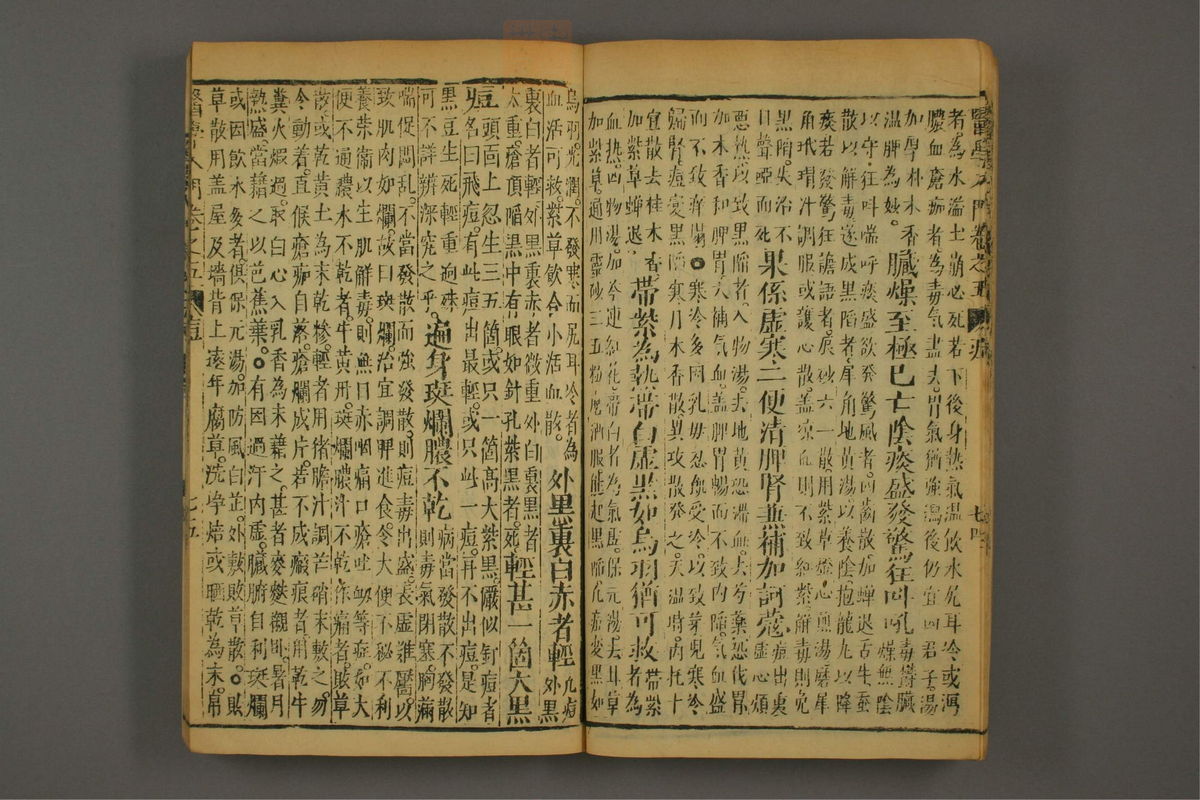 醫學入門卷之五 痘 七四
者為水濫土崩必死若下後身熱氣溫飲水尻耳冷或渴
膿血瘡痂者為毒氣盡去胃氣猶強瀉後仍宜四君子湯
加厚朴木香
溫脾為妙。臟燥至極已亡陰痰盛發驚狂叫吼毒鬱臟燥無陰
以守狂叫喘呼痰盛欲發驚風者四齒散加蟬退
散以解毒遂成黑陷者犀角地黃湯以養陰抱龍丸以降
痰若發驚狂譫語者辰砂六一散用紫草燈心煎湯磨犀
角玳瑁汁調服或護心散蓋涼血則不致紅紫解毒則免
黑陷失治不果係虛寒二便清脾腎兼補加訶蔻痘出裏虛心煩
目聲啞而死
惡熱以致黑陷者八物湯去地黃恐滯血去芍藥恐伐胃
加木香和脾胃大補氣血蓋脾胃暢而不致內陷氣血盛
而不致癢塌〇寒冷多因乳母忍飢受冷以致芽兒寒冷
歸腎痘變黑陷寒月木香散異攻散發之天溫時內托十
宣散去桂木香帶紫為熱帶白虛黑如烏羽猶可救帶紫者為
加紫草蟬退
血熱四物湯加芩連紅花帶白者為氣虛保元湯去甘草
加紫草通用靈砂三五粒磨酒服能起黑陷凡痘變黑如
烏羽光潤不發寒而尻耳冷者為
血活可救紫草飲合小活血散外黑裏白赤者輕凡痘外黑
裏白者輕外黑裏赤者微重外白裏黑者
太重瘡頂陷黑中有眼如針孔紫黑者死輕甚一箇大黑
痘頭面上忽生三五箇或只一箇高大紫黑儼似釘痘者
名曰飛痘有此痘出最輕或只此一痘再不出痘是知
黑豆生死輕重迥殊
可不詳辨深究之乎遍身斑爛膿不乾病當發散不發散則毒氣閉塞胸滿
喘促悶亂不當發散而強發散則痘毒出盛表虛難醫以
致肌肉如爛故曰斑爛治宜調脾進食令大便不秘不利
養榮衛以生肌解毒則無目赤咽痛口瘡吐衂等症如大
便不通膿水不乾者牛黃
散或乾黃土為末乾慘輕者用猪膽汁調芒硝末敷之勿
令動着直候瘡痂自落瘡爛成片若不成瘢痕者用乾牛
糞火煆過取白心入乳香為末摻之甚者麥麩襯臥暑月
熱盛當藉之以芭蕉葉〇有因過汗內虛臟腑自利斑爛
或因飲水多者俱保元湯加防風白芷外敷敗草散〇敗
草散用盖屋及墻背上遠年腐草洗淨焙或曬乾為末帛
醫學入門卷之五 痘 七五